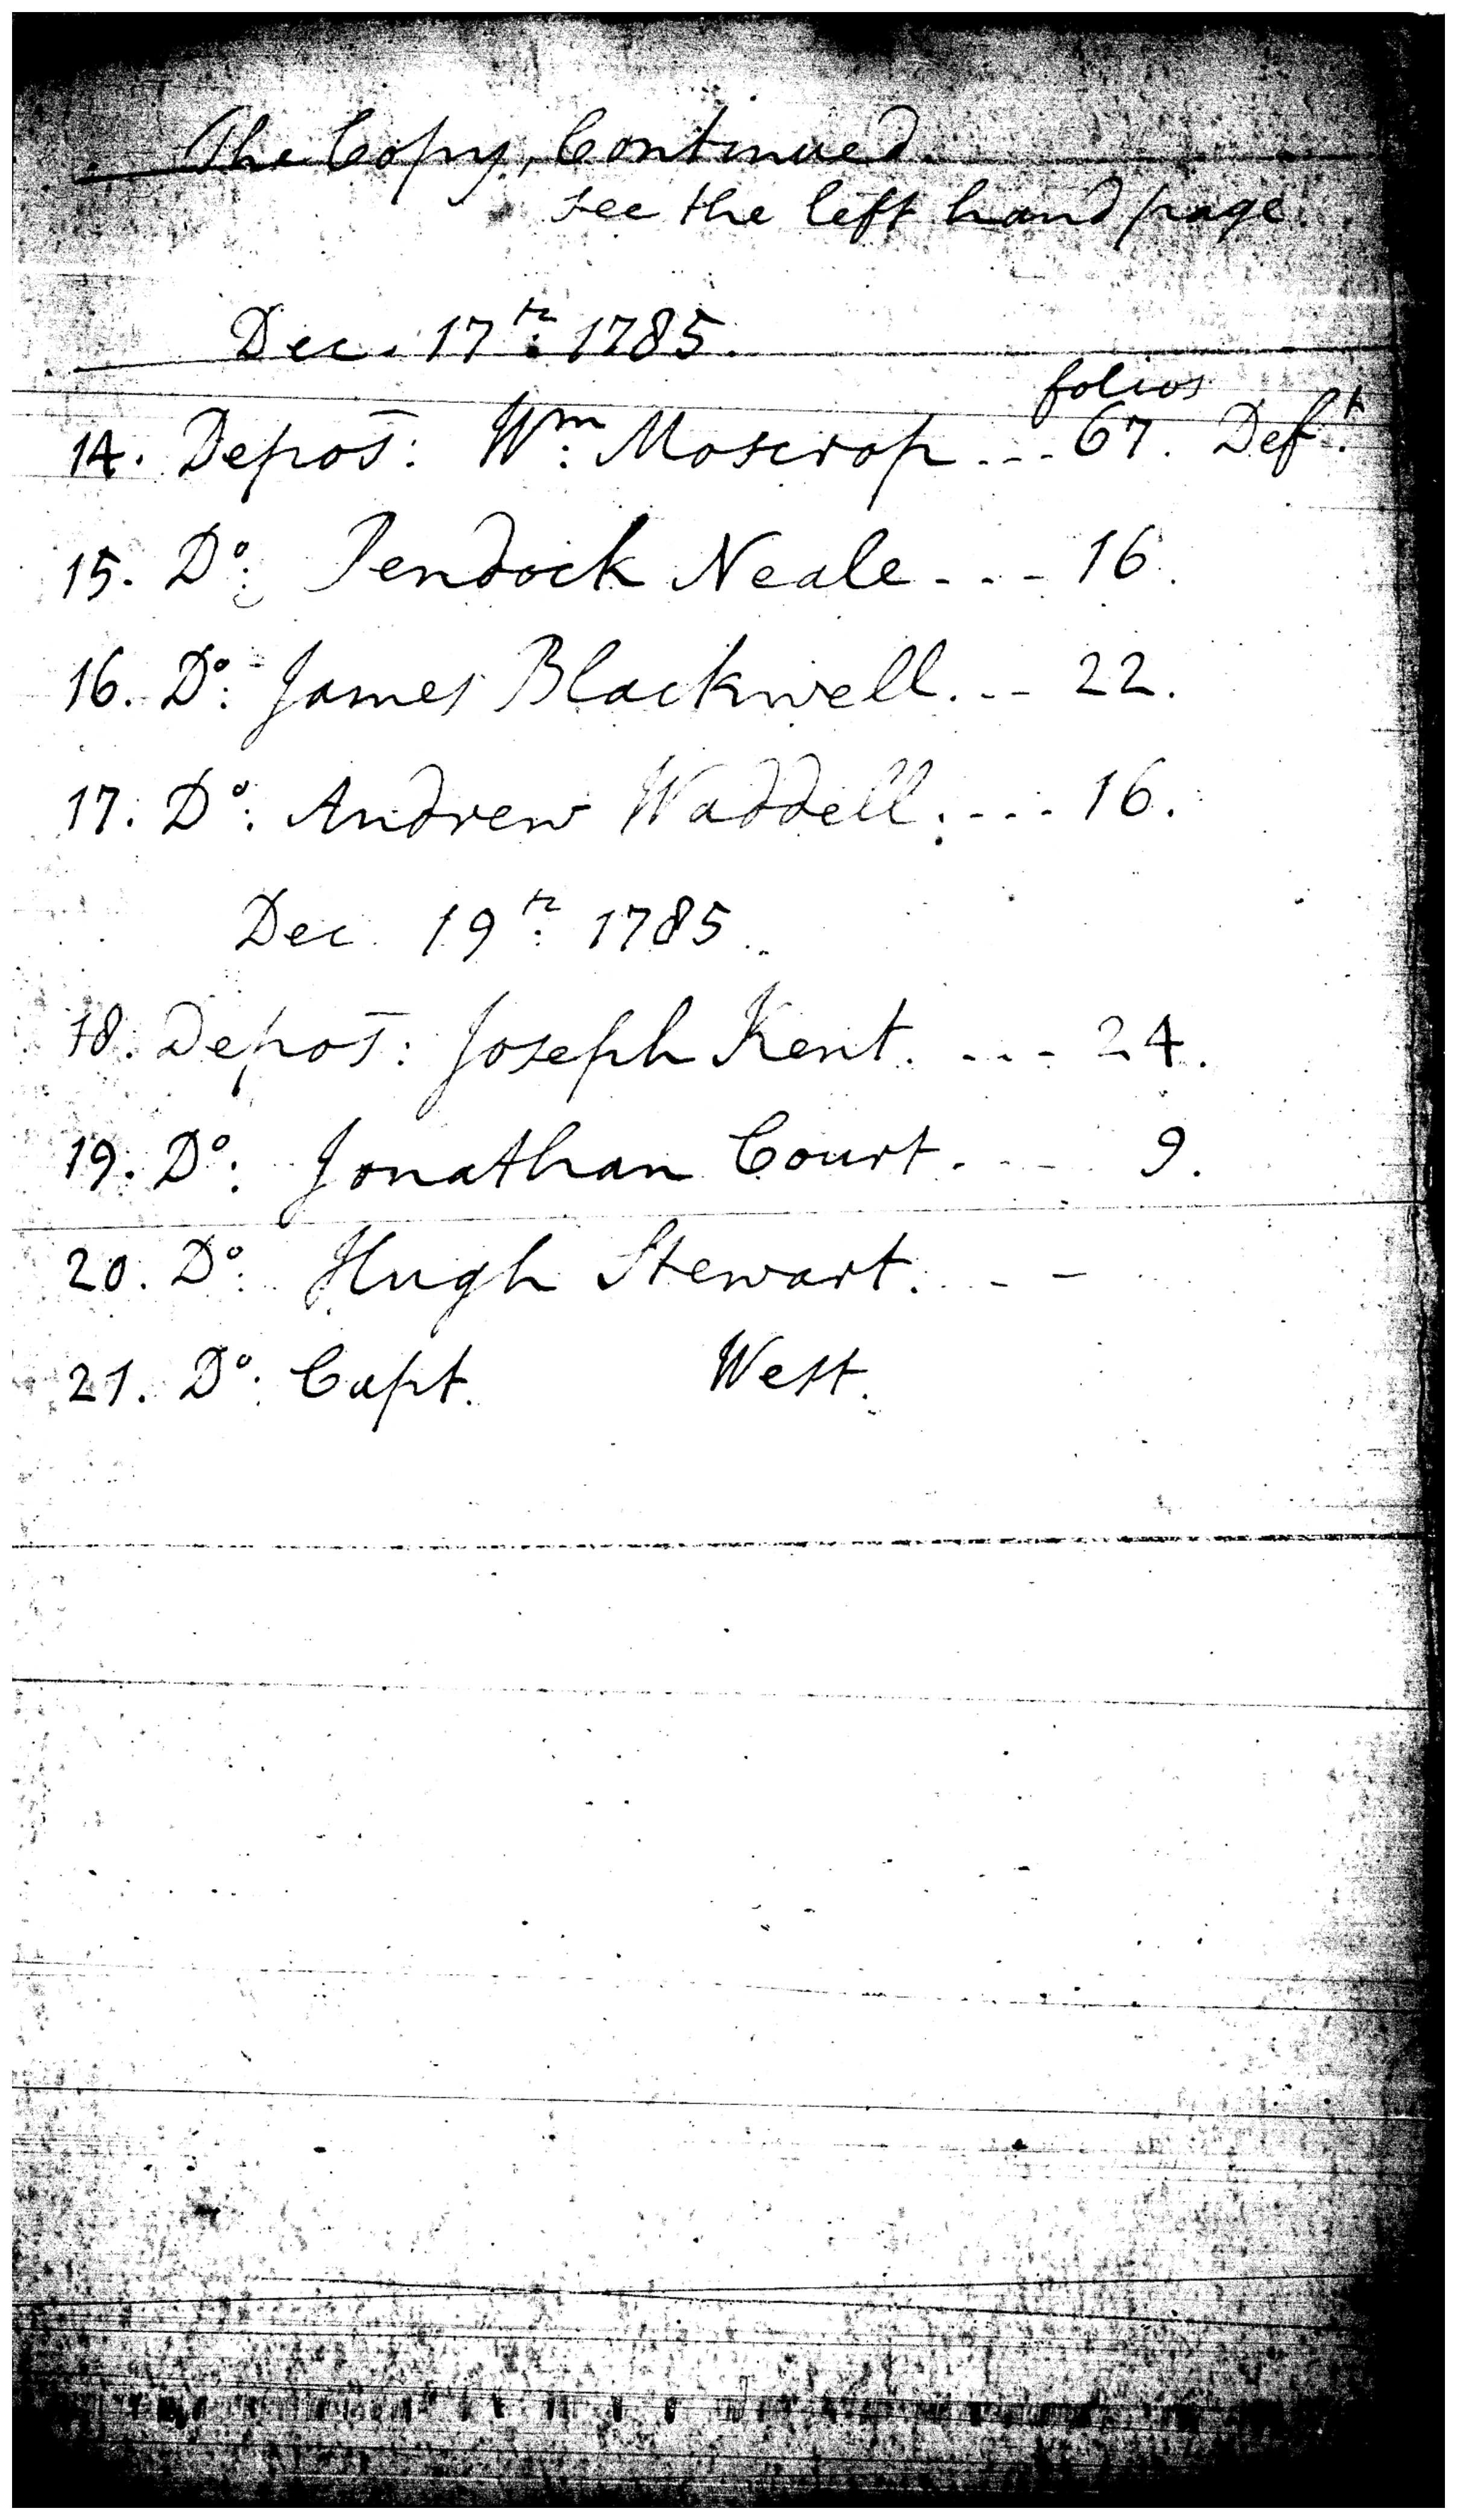 The Copy, Continued.
see the left hand page.
Dec. 17th: 1785.
folios
14. Depot: Wm: Moscrop --- 67. Deft:
15. Do: Pendock Neale --- 16.
16. Do: James Blackwell. -- 22.
17. Do: Andrew Waddell. --- 16.
Dec. 19th: 1785.
18. Depot: Joseph Kent. --- 24.
19. Do: Jonathan Court. --- 9.
20. Do: Hugh Stewart. --
21. Do: Capt. West.